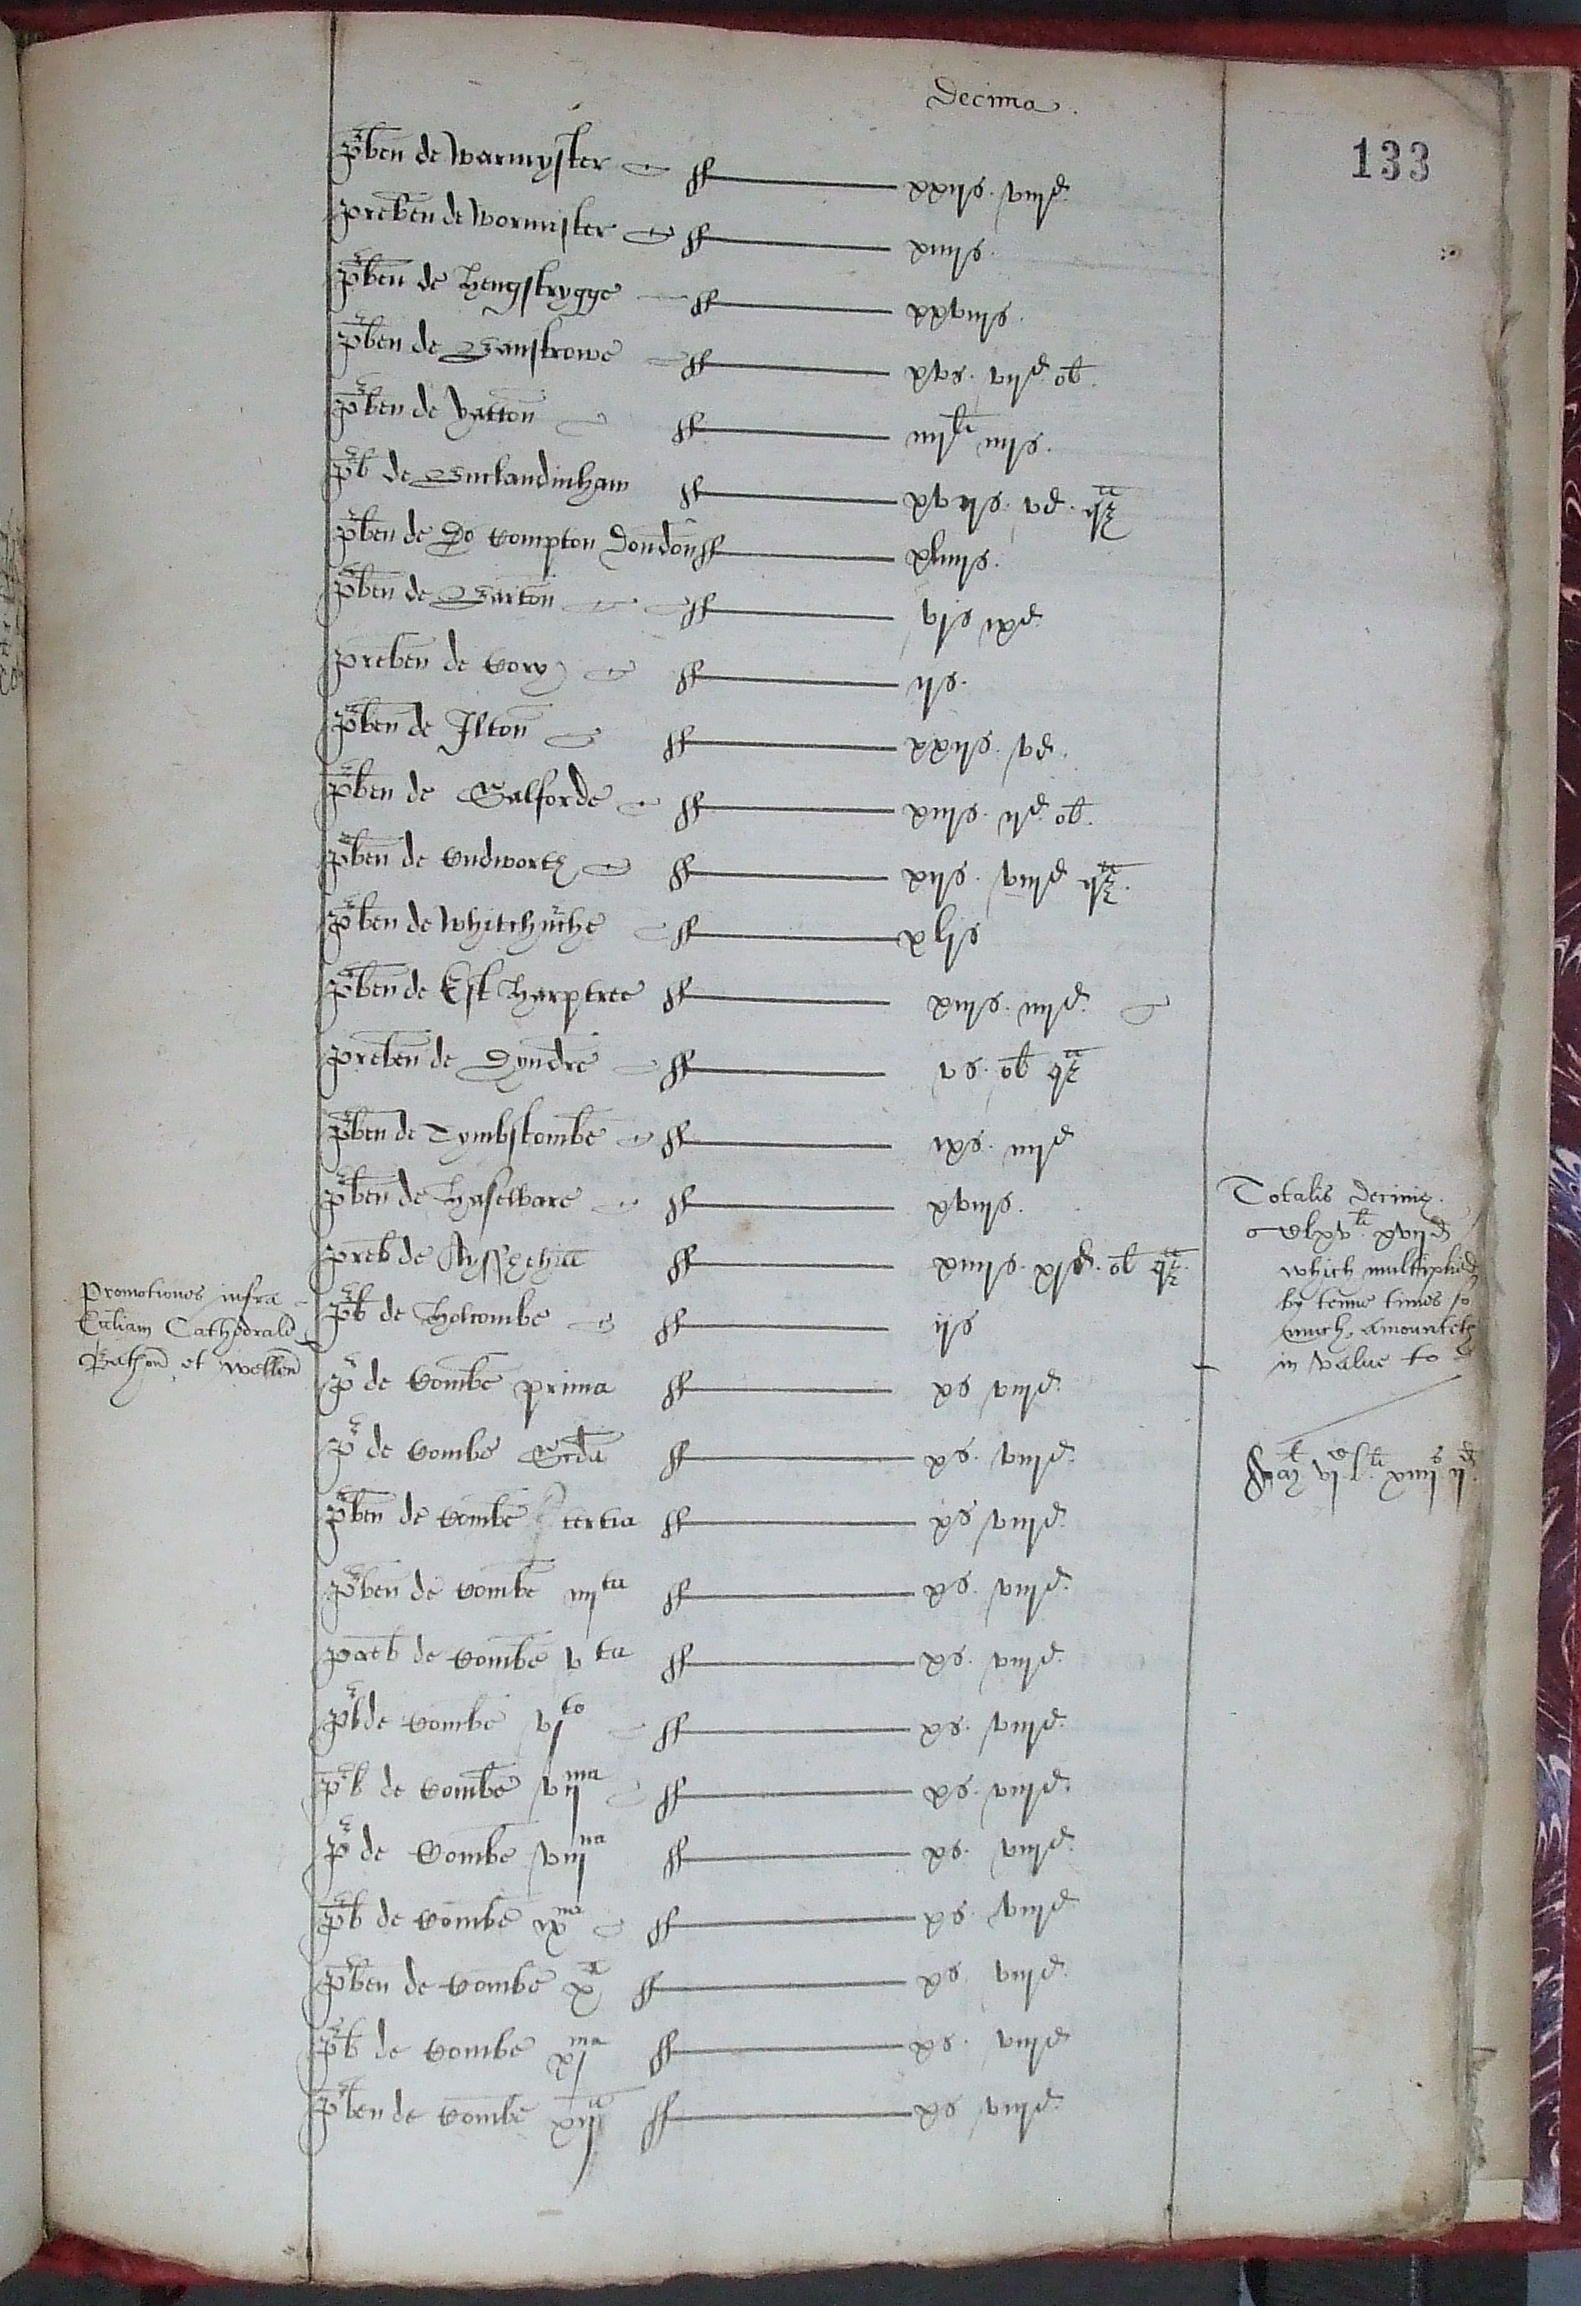 Decima
133
p̃ben de Warmyster ff xxijs. viijd.
preben de Wormister ff xiiijs.
p̃ben de Hengstrygge ff xxviijs.
p̃ben de Sanstrowe ff xvs. vijd. ob.
p̃ben de Yatton ff iiijli iiijs.
p̃b de ff xvijs. vd. qa
p̃ben de Compton Dondon ff xliiijs.
p̃ben de Barton ff vjs ixd.
preben de Cory ff ijs.
p̃ben de Ilton ff xxijs. vd.
p̃ben de Salforde ff xiijs. ijd. ob.
p̃ben de Cudworth ff xijs. viijd qa.
p̃ben de Whitchurche ff xljs
p̃ben de Est Harptree ff xiijs. iiijd.
preben de Dyndre ff vs. ob qa
p̃ben de Tymbscombe ff ixs. iiijd
p̃ben de Haselbare ff xviijs.
preb de ff xiiijs. xjd. ob qa.
p̃b de Holcombe ff ijs
p̃ de Combe prima ff xs viijd.
p̃ de Combe Scda ff xs. viijd.
p̃ben de Combe tertia ff xs viijd.
p̃ben de Combe iiijta ff xs. viijd.
preb de Combe vta ff xs. viijd.
p̃b de Combe vjto ff xs. viijd.
p̃b de Combe vijma ff xs. viijd.
p̃ de Combe viijna ff xs. viijd.
p̃b de Combe ixna ff xs. viijd.
p̃ben de Combe xa ff xs. viijd.
p̃b de Combe xjma ff xs. viijd.
p̃ben de Combe xija ff xs viijd.
Promotiones infra
Ecliam Cathedrale
Bathon et Wellen
Totalis decime.
Clxvli xvijd
which multiplied
by tenne times so
much, amounteth
in value to